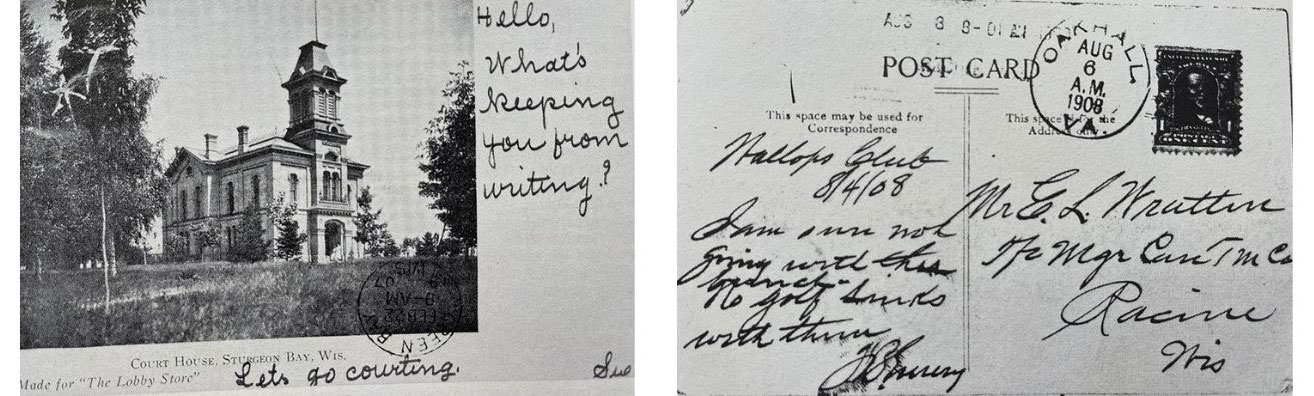 Hello,
What's
keeping
you from
writing?
GREEN BAY
FEB 22
8-AM
07
WIS.
COURT HOUSE, STURGEON BAY, WIS.
Made for "The Lobby Store"
Lets go courting.
Sue
AUG 8 8-01
POST CARD
OAKHALL
AUG
6
A.M.
1908
VA
This space may be used for
Correspondence
This space is for the
Address only.
Wallops Club
8/4/08
I am sure not
going with this
bunch
No golf links
with them
Mr E. L. Wratten
Mgr Case T M Co
Racine
Wis